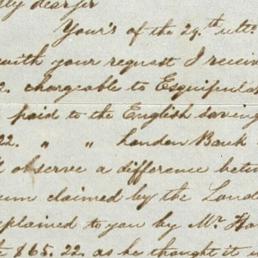 My dear Sir
Yours of the 29th ulto.
with your request I receiv
2. chargeable to Esquipula
paid to the English saving
22. " " London Bank
l observe a difference betw
sum claimed by the Lond
xplained to you by Mr Ha
$65.22. as he thought it